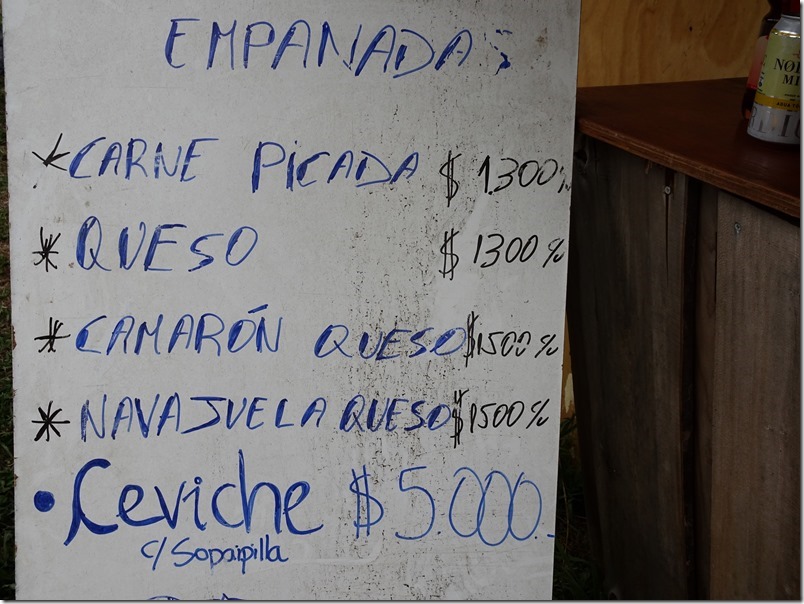 EMPANADAS
* CARNE PICADA $ 1.300%
* QUESO $ 1300 %
* CAMARÓN QUESO $1500 %
* NAVAJUELA QUESO $1500 %
• Ceviche $ 5.000.-
c/ Sopaipilla